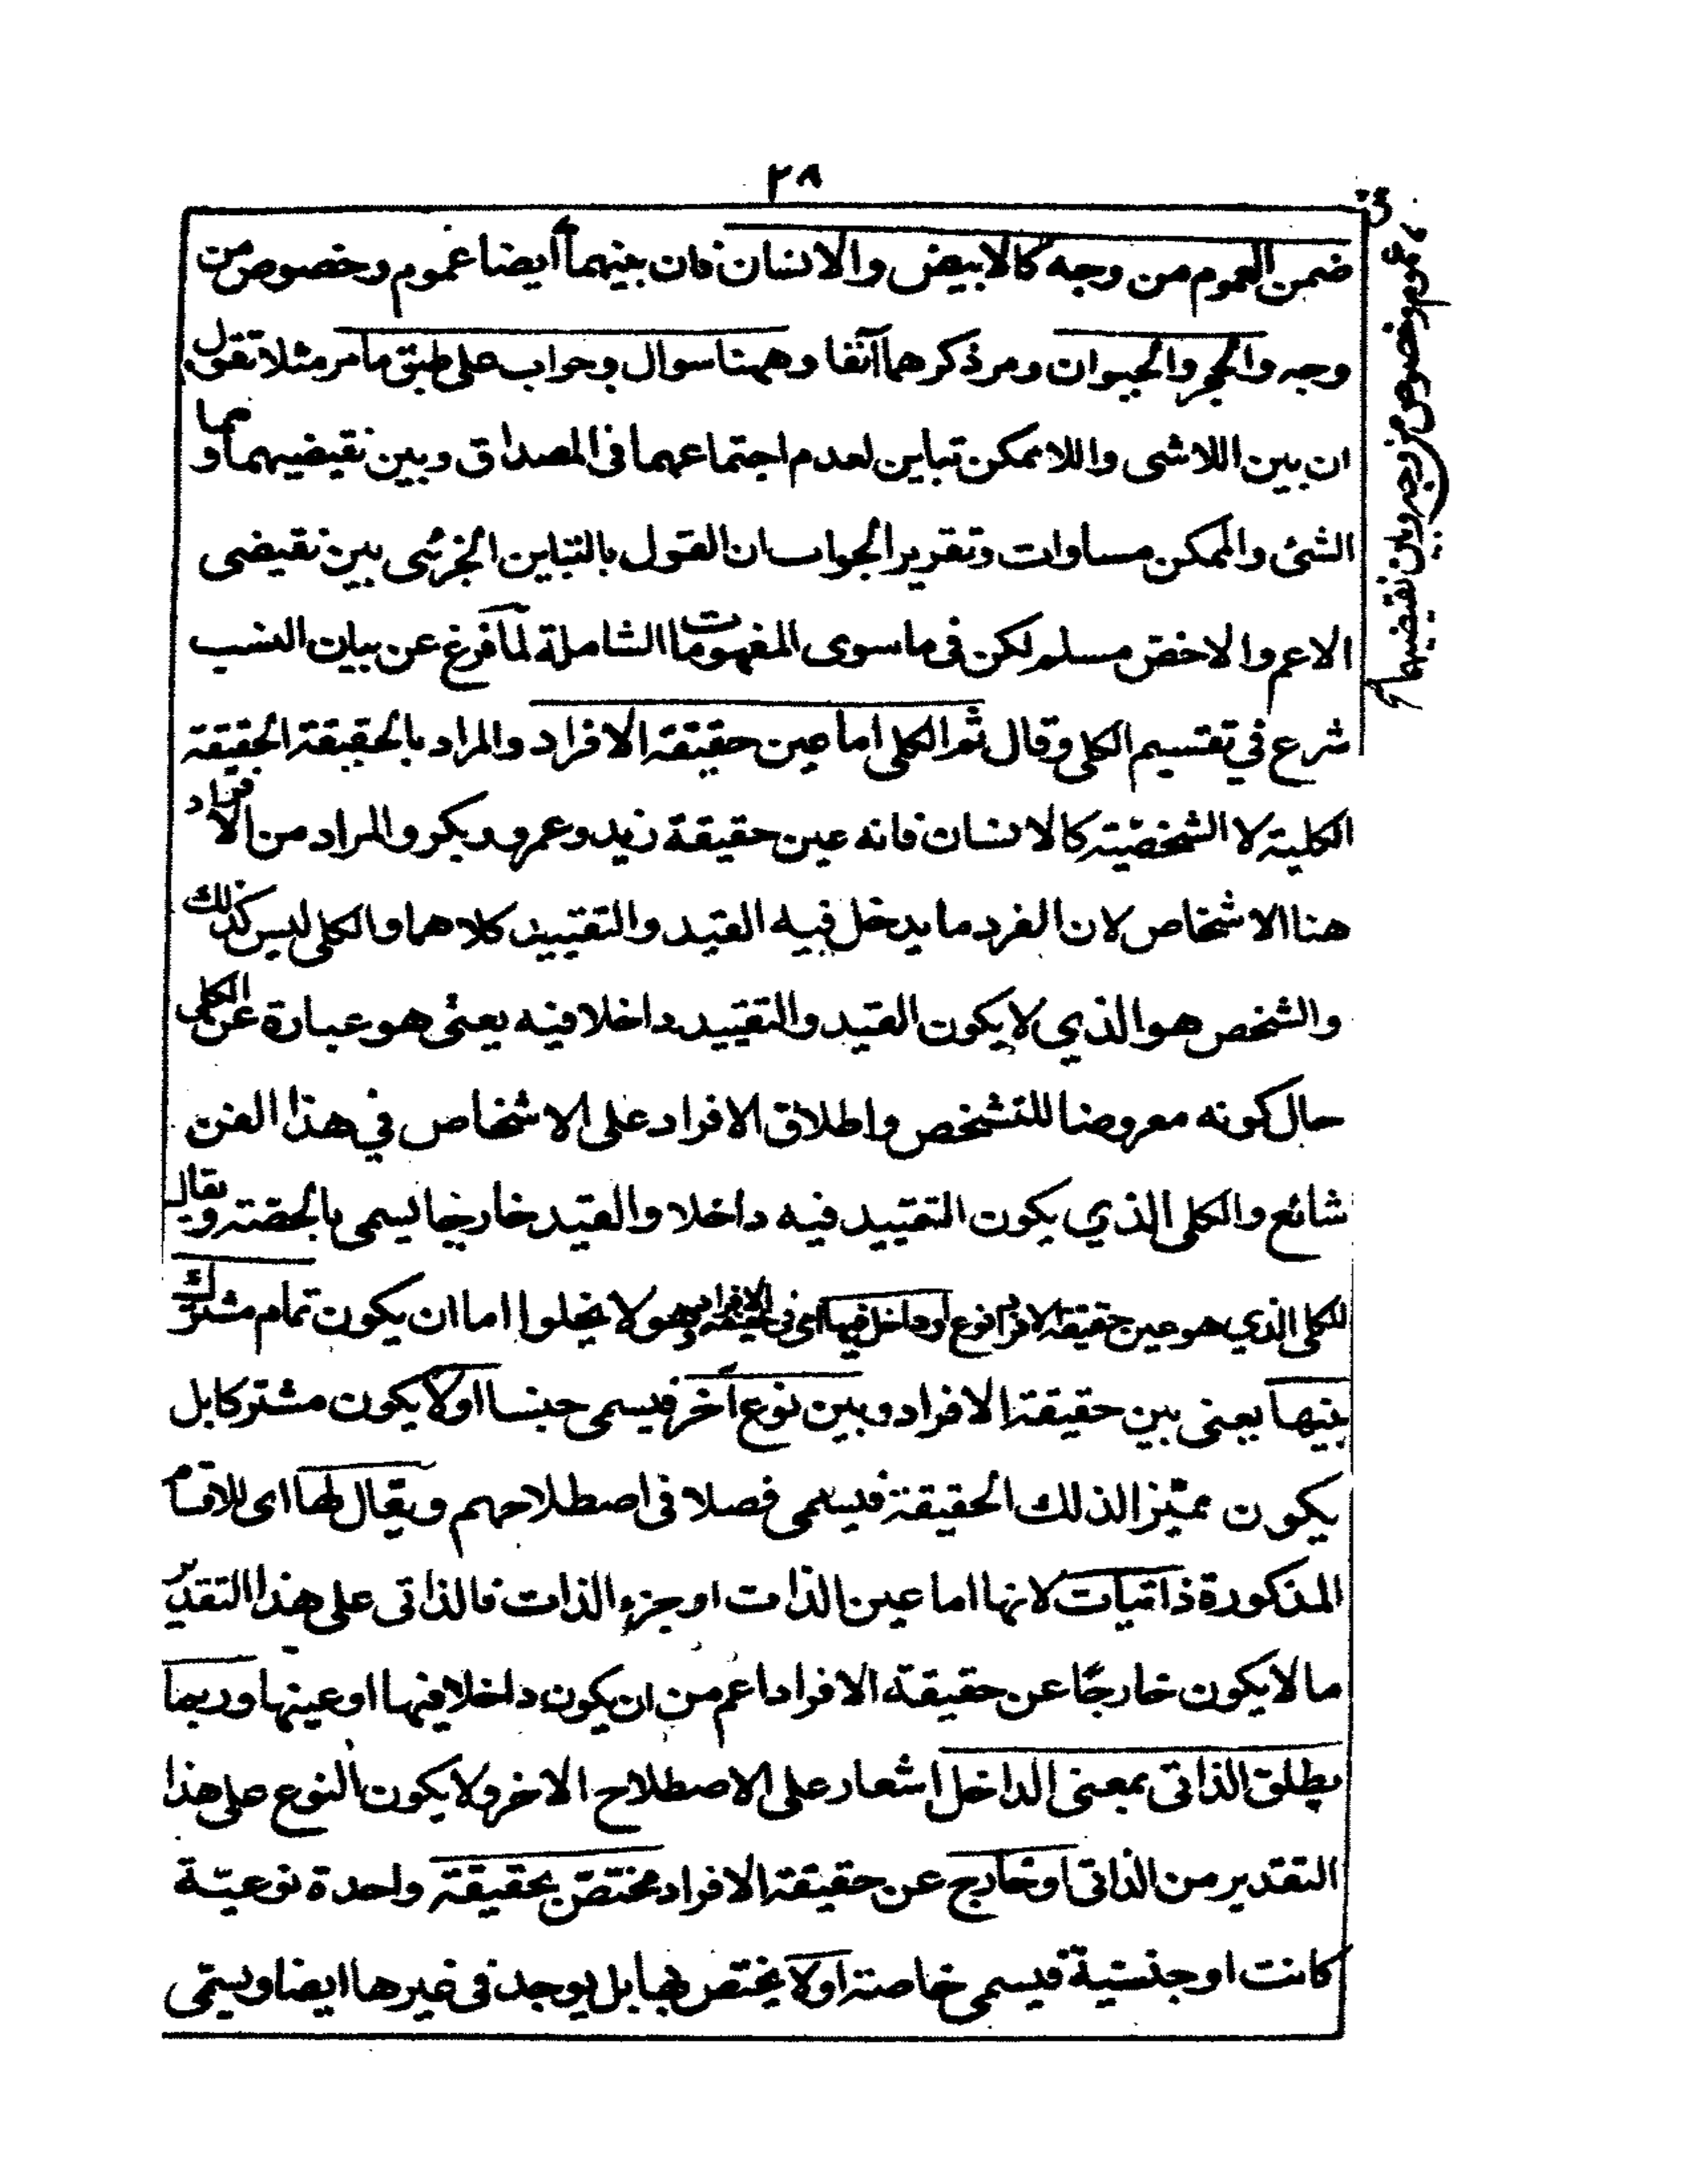 ٢٨
ضمن العموم من وجه كالابيض والانسان فان بينهما ايضا عموم وخصوص من
وجه والحجر والحيوان ومر ذكرهما آنفا وههنا سوال وجواب على طبق ما مر مثلا تقول
ان بين اللاشى واللاممكن تباين لعدم اجتماعهما فى المصداق وبين نقيضيهما وهما
الشئ والممكن مساوات وتقرير الجواب ان القول بالتباين الجزئى بين نقيضى
الاعم والاخص مسلم لكن فى ما سوى المفهومات الشاملة لما فرغ عن بيان النسب
شرع في تقسيم الكلى وقال ثم الكلى اما عين حقيقة الافراد والمراد بالحقيقة الحقيقة
الكلية لا الشخصية كالانسان فانه عين حقيقة زيد وعمرو وبكر والمراد من الافراد
هنا الاشخاص لان الفرد ما يدخل فيه القيد والتقييد كلاهما والكلى ليس كذلك
والشخص هو الذي لا يكون القيد والتقييد داخلا فيه يعنى هو عبارة عن الكلى
حال كونه معروضا للتشخص واطلاق الافراد على الاشخاص في هذا الفن
شائع والكلى الذي يكون التقييد فيه داخلا والقيد خارجا يسمى بالحصة ويقال
للكلى الذي هو عين حقيقة الافراد نوع او داخل فيها اى فى حقيقة الافراد وهو لا يخلوا اما ان يكون تمام مشترك
بينها يعنى بين حقيقة الافراد وبين نوع آخر فيسمى جنسا اولا يكون مشتركا بل
يكون مميزا لذلك الحقيقة فيسمى فصلا فى اصطلاحهم ويقال لها اى للاقسام
المذكورة ذاتيات لانها اما عين الذات او جزء الذات فالذاتى على هذا التقدير
ما لا يكون خارجًا عن حقيقة الافراد اعم من ان يكون داخلا فيها او عينها وربما
يطلق الذاتى بمعنى الداخل اشعار على الاصطلاح الاخر ولا يكون النوع على هذا
التقدير من الذاتى او خارج عن حقيقة الافراد مختص بحقيقة واحدة نوعيّة
كانت او جنسية فيسمى خاصة اولا يختص بها بل يوجد فى غيرها ايضا ويسمى
عموم وخصوص من وجه وبين نقيضيهما